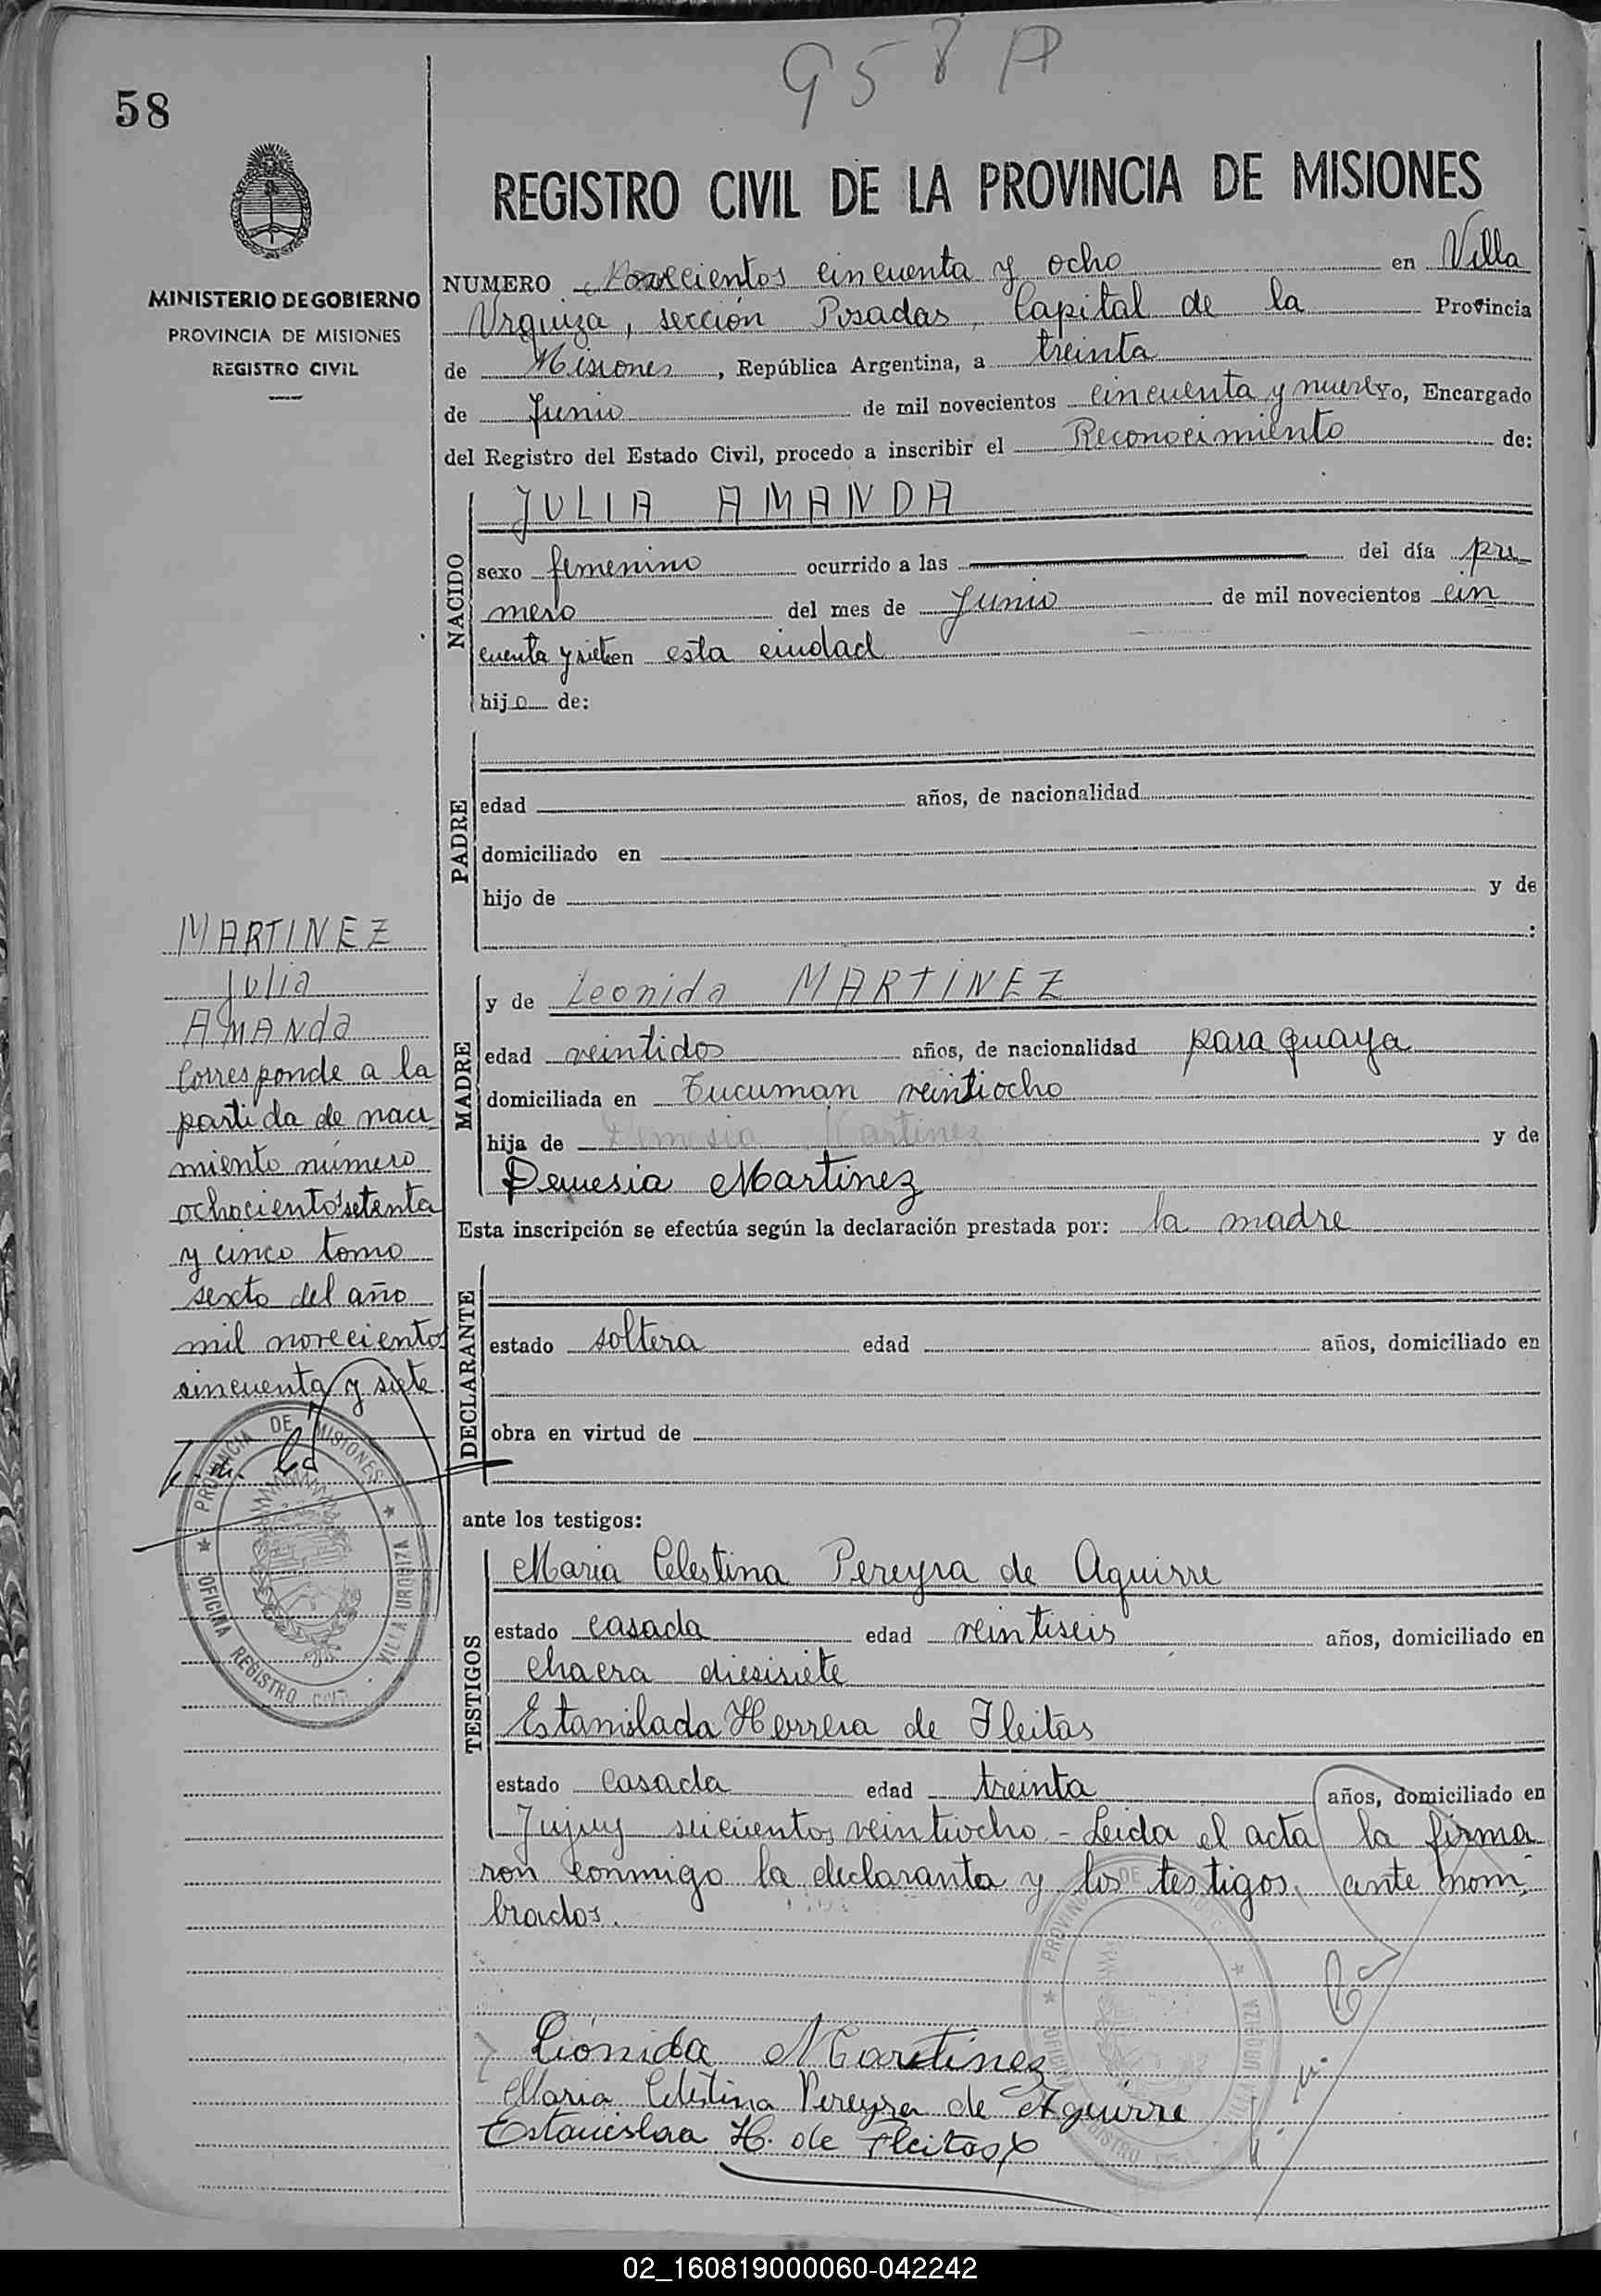 958 A
58
REGISTRO CIVIL DE LA PROVINCIA DE MISIONES
MINISTERIO DE GOBIERNO
PROVINCIA DE MISIONES
REGISTRO CIVIL
NUMERO Novecientos cincuenta y ocho en Villa
Urquiza, sección Posadas, Capital de la Provincia
de Misiones, República Argentina, a treinta
de Junio de mil novecientos cincuenta y nueve yo, Encargado
del Registro del Estado Civil, procedo a inscribir el Reconocimiento de:
NACIDO
JULIA AMANDA
sexo femenino ocurrido a las del día pri
mero del mes de Junio de mil novecientos cin
cuenta y siete en esta ciudad
hija de:
PADRE
edad años, de nacionalidad
domiciliado en
hijo de y de
:
MARTINEZ
Julia
AMANda
Corresponde a la
partida de naci
miento número
ochocientos setenta
y cinco tomo
sexto del año
mil novecientos
cincuenta y siete
PROVINCIA DE MISIONES
OFICINA REGISTRO CIVIL
VILLA URQUIZA
MADRE
y de Leonida MARTINEZ
edad veintidos años, de nacionalidad paraguaya
domiciliada en Tucuman veintiocho
hija de Demesia Martinez y de
Demesia Martinez
Esta inscripción se efectúa según la declaración prestada por: la madre
DECLARANTE
estado soltera edad años, domiciliado en
obra en virtud de
ante los testigos:
TESTIGOS
Maria Celestina Pereyra de Aguirre
estado casada edad veintiseis años, domiciliado en
chacra diesisiete
Estanislada Herrera de Fleitas
estado casada edad treinta años, domiciliado en
Jujuy seicientos veintiocho - Leida el acta la firma
ron conmigo la declaranta y los testigos ante nom
brados.
PROVINCIA DE MISIONES
OFICINA REGISTRO CIVIL
VILLA URQUIZA
Liónida Martinez
Maria Celestina Pereyra de Aguirre
Estanislaa H. de Fleitas
02_160819000060-042242